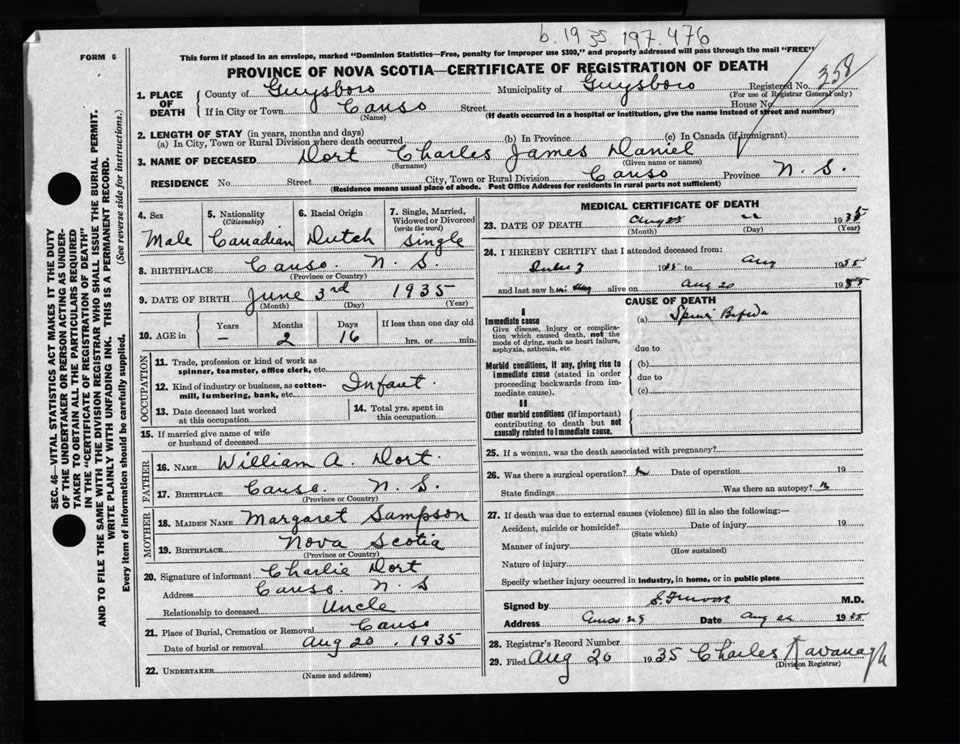 b. 1935 197-476
FORM 6
This form if placed in an envelope, marked "Dominion Statistics—Free, penalty for improper use $300," and properly addressed will pass through the mail "FREE"
PROVINCE OF NOVA SCOTIA—CERTIFICATE OF REGISTRATION OF DEATH
358
1. PLACE OF DEATH County of Guysboro Municipality of Guysboro Registered No.
(For use of Registrar General only)
If in City or Town Canso Street House No.
(Name) (If death occurred in a hospital or institution, give the name instead of street and number)
2. LENGTH OF STAY (in years, months and days)
(a) In City, Town or Rural Division where death occurred (b) In Province (c) In Canada (if immigrant)
3. NAME OF DECEASED Dort Charles James Daniel
(Surname) (Given name or names)
RESIDENCE No. Street City, Town or Rural Division Canso Province N. S.
(Residence means usual place of abode. Post Office Address for residents in rural parts not sufficient)
4. Sex 5. Nationality (Citizenship) 6. Racial Origin 7. Single, Married, Widowed or Divorced (write the word)
Male Canadian Dutch Single
8. BIRTHPLACE Canso. N. S.
(Province or Country)
9. DATE OF BIRTH June 3rd 1935
(Month) (Day) (Year)
10. AGE in Years Months Days If less than one day old
— 2 16 hrs. or min.
OCCUPATION
11. Trade, profession or kind of work as spinner, teamster, office clerk, etc.
12. Kind of industry or business, as cotton-mill, lumbering, bank, etc. Infant.
13. Date deceased last worked at this occupation
14. Total yrs. spent in this occupation
15. If married give name of wife or husband of deceased
FATHER
16. NAME William A. Dort.
17. BIRTHPLACE Canso. N. S.
(Province or Country)
MOTHER
18. MAIDEN NAME Margaret Sampson
19. BIRTHPLACE Nova Scotia
(Province or Country)
20. Signature of informant Charlie Dort
Address Canso. N. S
Relationship to deceased Uncle
21. Place of Burial, Cremation or Removal Canso
Date of burial or removal Aug 20. 1935
22. UNDERTAKER
(Name and address)
MEDICAL CERTIFICATE OF DEATH
23. DATE OF DEATH 1935
(Month) (Day) (Year)
24. I HEREBY CERTIFY that I attended deceased from:
1935 to Aug 1935
and last saw h alive on Aug 20 1935
CAUSE OF DEATH
I
Immediate cause
Give disease, injury or complication which caused death, not the mode of dying, such as heart failure, asphyxia, asthenia, etc.
(a) Spina Bifida
due to
Morbid conditions, if any, giving rise to immediate cause (stated in order proceeding backwards from immediate cause).
(b)
due to
(c)
II
Other morbid conditions (if important) contributing to death but not causally related to immediate cause.
25. If a woman, was the death associated with pregnancy?
26. Was there a surgical operation? Date of operation 19
State findings Was there an autopsy?
27. If death was due to external causes (violence) fill in also the following:—
Accident, suicide or homicide? Date of injury 19
(State which)
Manner of injury
(How sustained)
Nature of injury
Specify whether injury occurred in industry, in home, or in public place
Signed by M.D.
Address Date Aug 1935
28. Registrar's Record Number
29. Filed Aug 20 1935 Charles Kavanagh
(Division Registrar)
SEC. 46—VITAL STATISTICS ACT MAKES IT THE DUTY
OF THE UNDERTAKER OR PERSON ACTING AS UNDER-
TAKER TO OBTAIN ALL THE PARTICULARS REQUIRED
IN THE "CERTIFICATE OF REGISTRATION OF DEATH"
AND TO FILE THE SAME WITH THE DIVISION REGISTRAR WHO SHALL ISSUE THE BURIAL PERMIT.
WRITE PLAINLY WITH UNFADING INK. THIS IS A PERMANENT RECORD.
Every item of information should be carefully supplied. (See reverse side for instructions.)